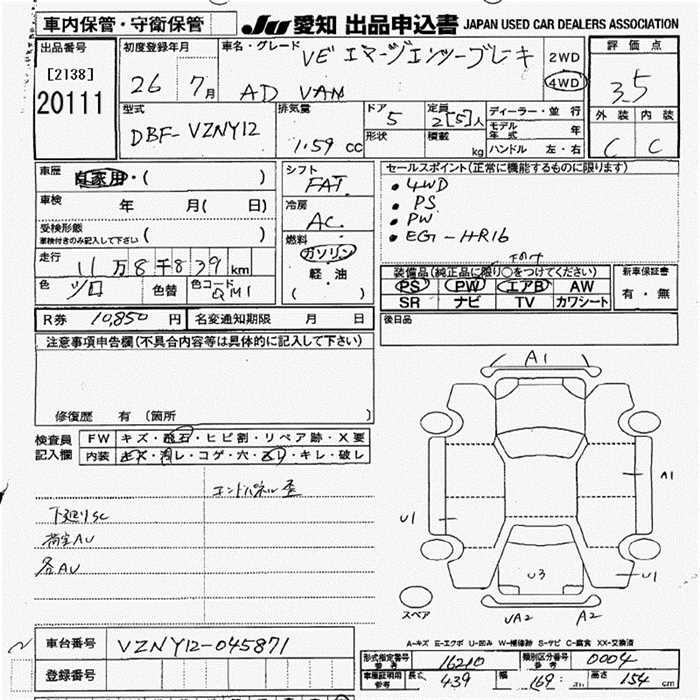 車内保管・守衛保管
JU 愛知 出品申込書 JAPAN USED CAR DEALERS ASSOCIATION
出品番号
[2138]
20111
初度登録年月
26 7月
車名・グレード
VE エマージエンシーブレーキ
AD VAN
2WD
4WD
評価点
3.5
外装 内装
C C
型式
DBF-VZNY12
排気量
1.59 cc
ドア
5
形状
定員
2[5]人
積載
kg
ディーラー・並行
モデル年式 年
ハンドル 左・右
車歴
自家用・( )
車検
年 月( 日)
受検形態
車検付きのみ記入して下さい ( )
走行
11万8千839km
色
シロ
色替
色コード
QM1
シフト
FAT
冷房
AC
燃料
ガソリン
軽・油
( )
セールスポイント(正常に機能するものに限ります)
・4WD
・PS
・PW
・EG-HR16
装備品(純正品に限り○をつけてください)
PS PW エアB AW
SR ナビ TV カワシート
新車保証書
有・無
R券 10,850 円
名変通知期限 月 日
後日品
注意事項申告欄(不具合内容等は具体的に記入して下さい)
修復歴 有(箇所 )
検査員記入欄
FW キズ・飛石・ヒビ割・リペア跡・X要
内装 キズ・汚レ・コゲ・穴・スレ・キレ・破レ
エンドパネル歪
下廻りSC
荷室AU
各AU
A1
A1
U1
U3
U1
UA2
A2
スペア
A-キズ E-エクボ U-凹み W-補修跡 S-サビ C-腐食 XX-交換済
車台番号 VZNY12-045871
登録番号
形式指定番号 参考 16210
類別区分番号 参考 0004
車庫証明用参考 長さ 439 幅 169 cm 高さ 154 cm